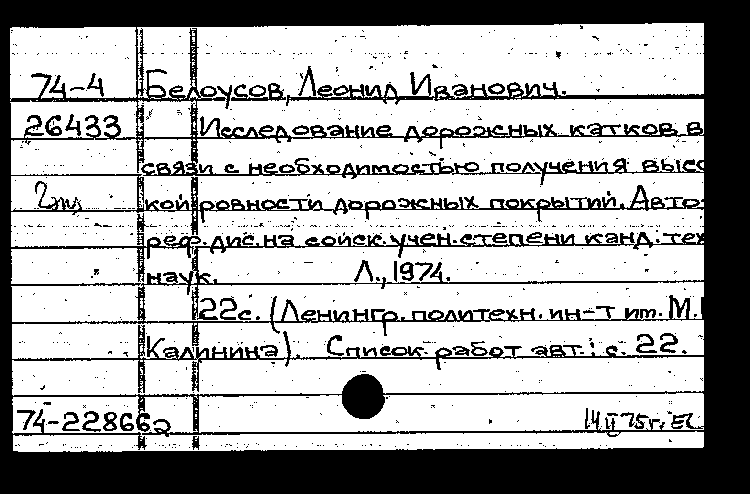 74-4 Белоусов, Леонид Иванович.
26433 Исследование дорожных катков в
связи с необходимостью получения высо
2 экз кой ровности дорожных покрытий. Авто-
реф. дис. на соиск. учен. степени канд. тех
наук. Л., 1974.
22с. (Ленингр. политехн. ин-т им. М.
Калинина). Список работ авт.: с. 22.
74-22866 14 II 75г.